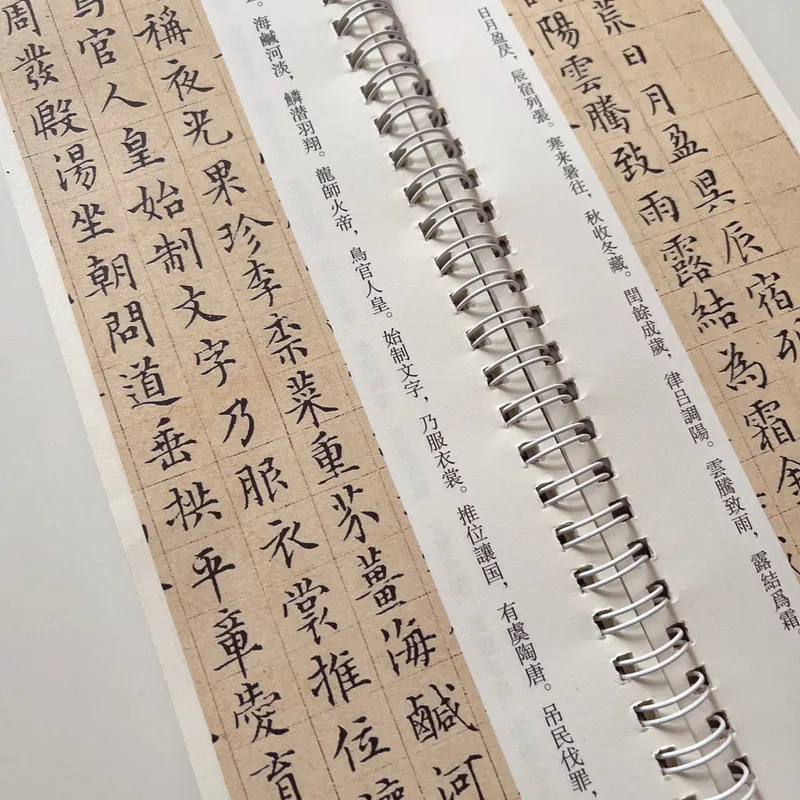 荒日月盈昃辰宿列
陽雲騰致雨露結為霜金
日月盈昃，辰宿列張。寒来暑往，秋收冬藏。閏餘成歲，律吕調陽。雲騰致雨，露結爲霜
海鹹河淡，鱗潜羽翔。龍師火帝，鳥官人皇。始制文字，乃服衣裳。推位讓国，有虞陶唐。吊民伐罪，
稱夜光果珍李柰菜重芥薑海鹹河
鳥官人皇始制文字乃服衣裳推位讓
周發殷湯坐朝問道垂拱平章愛育